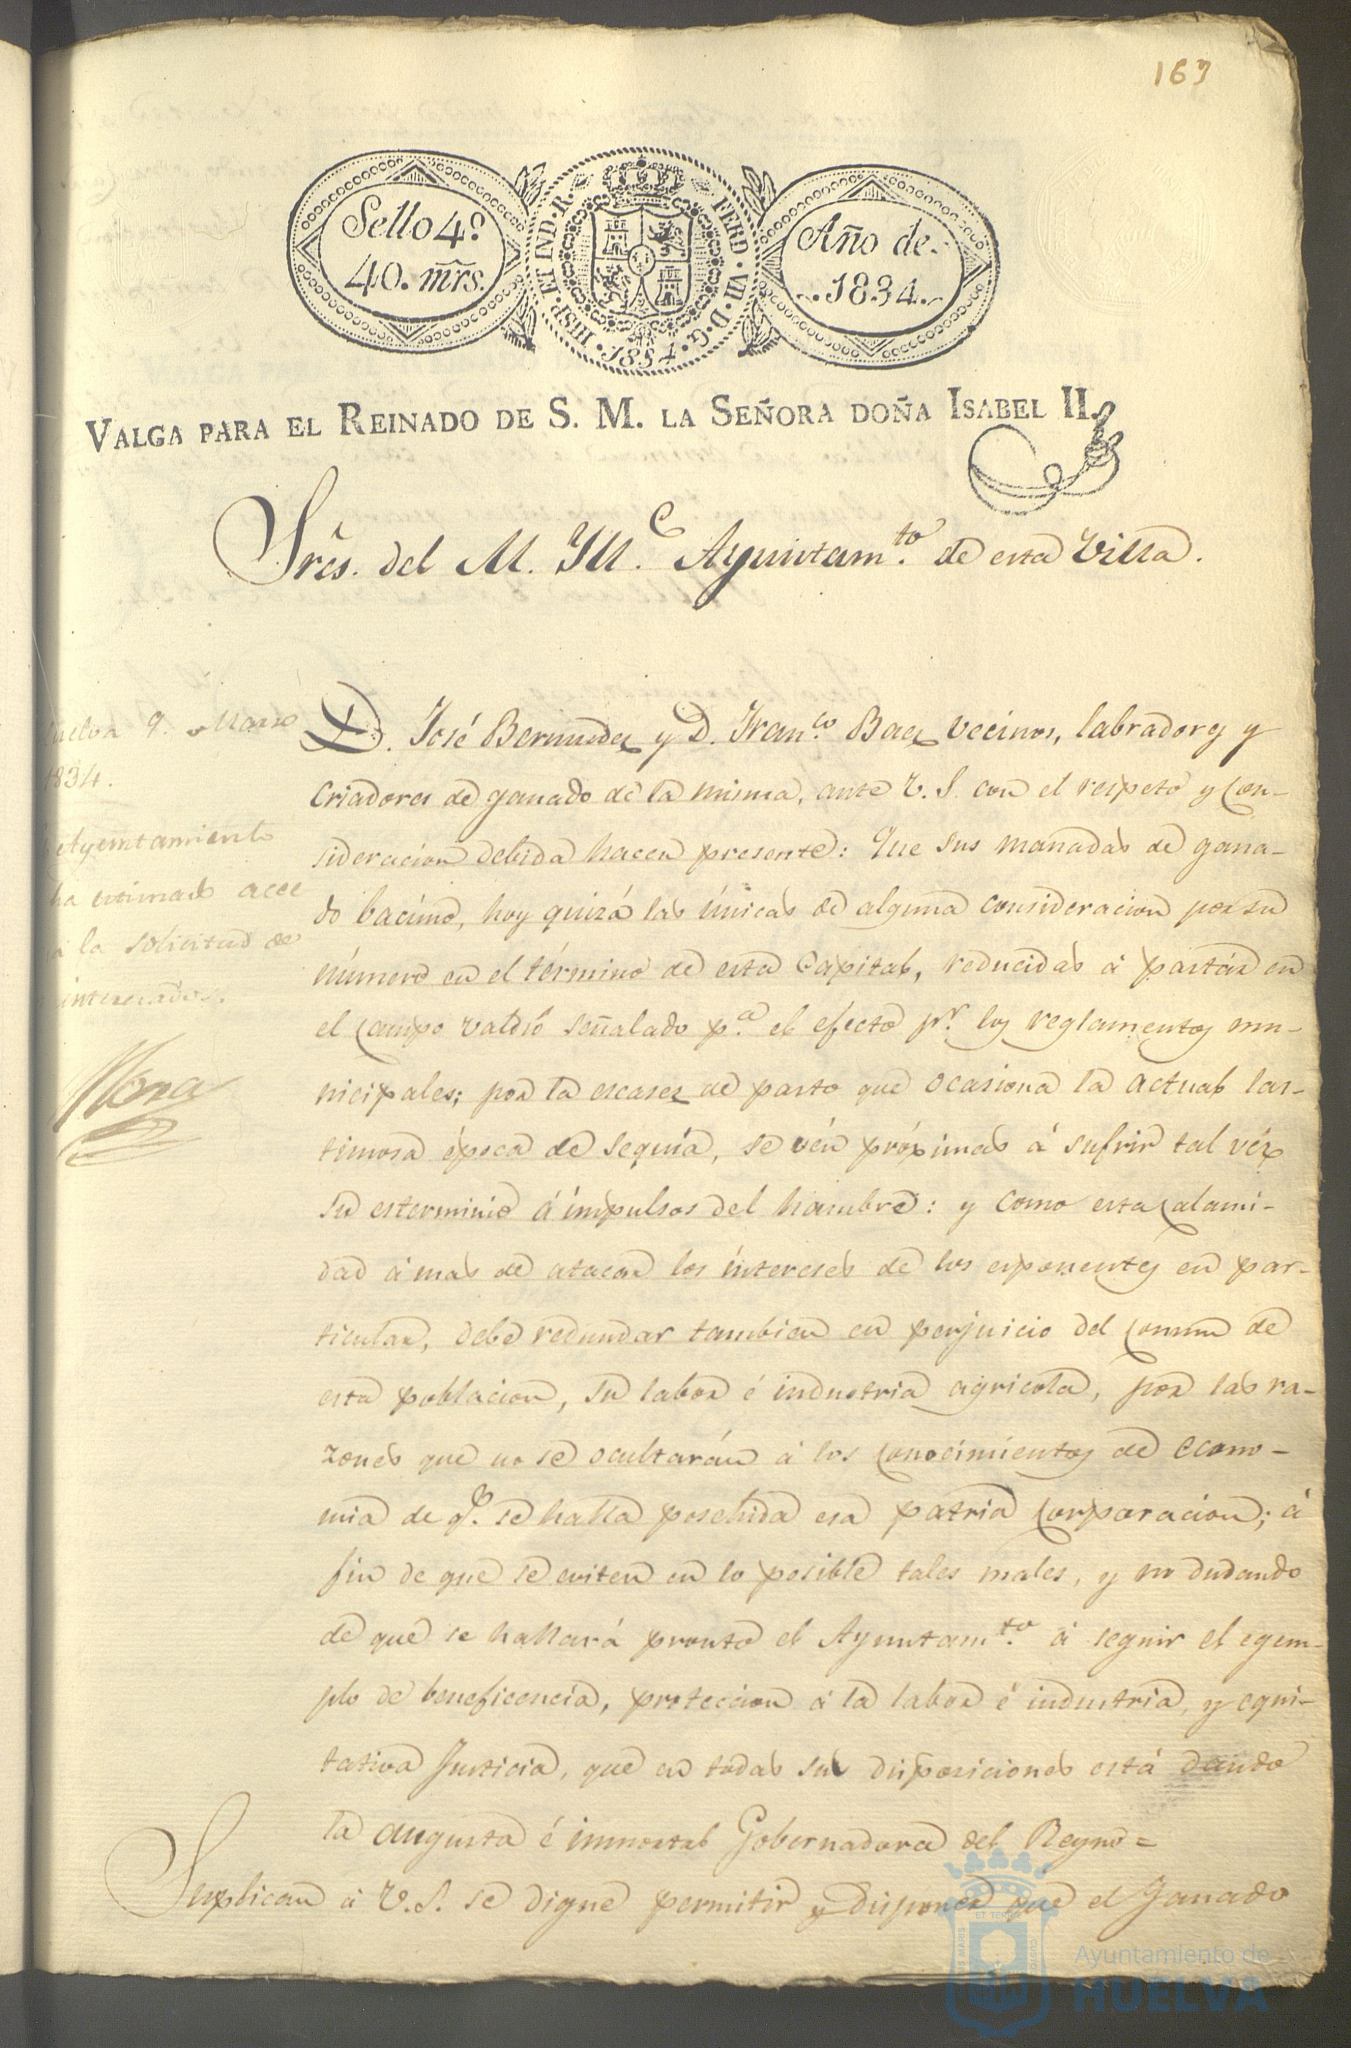 163
Sello 4º
40. mrs.
HISP. ET IND. R. FERD. VII. D. G. 1834.
Año de
1834.
VALGA PARA EL REINADO DE S. M. LA SEÑORA DOÑA ISABEL II.
Sres. del M. Ill.e Ayuntam.to de esta Villa.
Huelva 9. Marzo
1834.
Ayuntamiento
ha estimado acce
a la solicitud de
interesados.
Mora
D. José Bermudez y D. Fran.co Baez vecinos, labradores y
criadores de ganado de la misma, ante V. S. con el respeto y con-
sideracion debida hacen presente: Que sus manadas de gana-
do bacuno, hoy quizá las únicas de alguna consideracion por su
número en el término de esta Capital, reducidas á pastár en
el campo valdió señalado p.a el efecto p.r los reglamentos mu-
nicipales; por la escasez de pasto que ocasiona la actual las-
timosa época de sequía, se vén próximas á sufrir tal véz
su esterminio á impulsos del hambre: y como esta calami-
dad á mas de atacar los intereses de los esponentes en par-
ticular, debe redundar tambien en perjuicio del comun de
esta poblacion, su labor é industria agricola, por las ra-
zones que no se ocultarán á los conocimientos de econo-
mia de q.e se halla posehida esa patria corporacion; á
fin de que se eviten en lo posible tales males, y no dudando
de que se hallará pronto el Ayuntam.to á seguir el egem-
plo de beneficencia, proteccion á la labor é industria, y equi-
tativa Justicia, que en todas sus disposiciones está dando
la augusta é inmortal Gobernadora del Reyno=
Suplican á V. S. se digne permitir y disponer que el Ganado
Ayuntamiento de
HUELVA